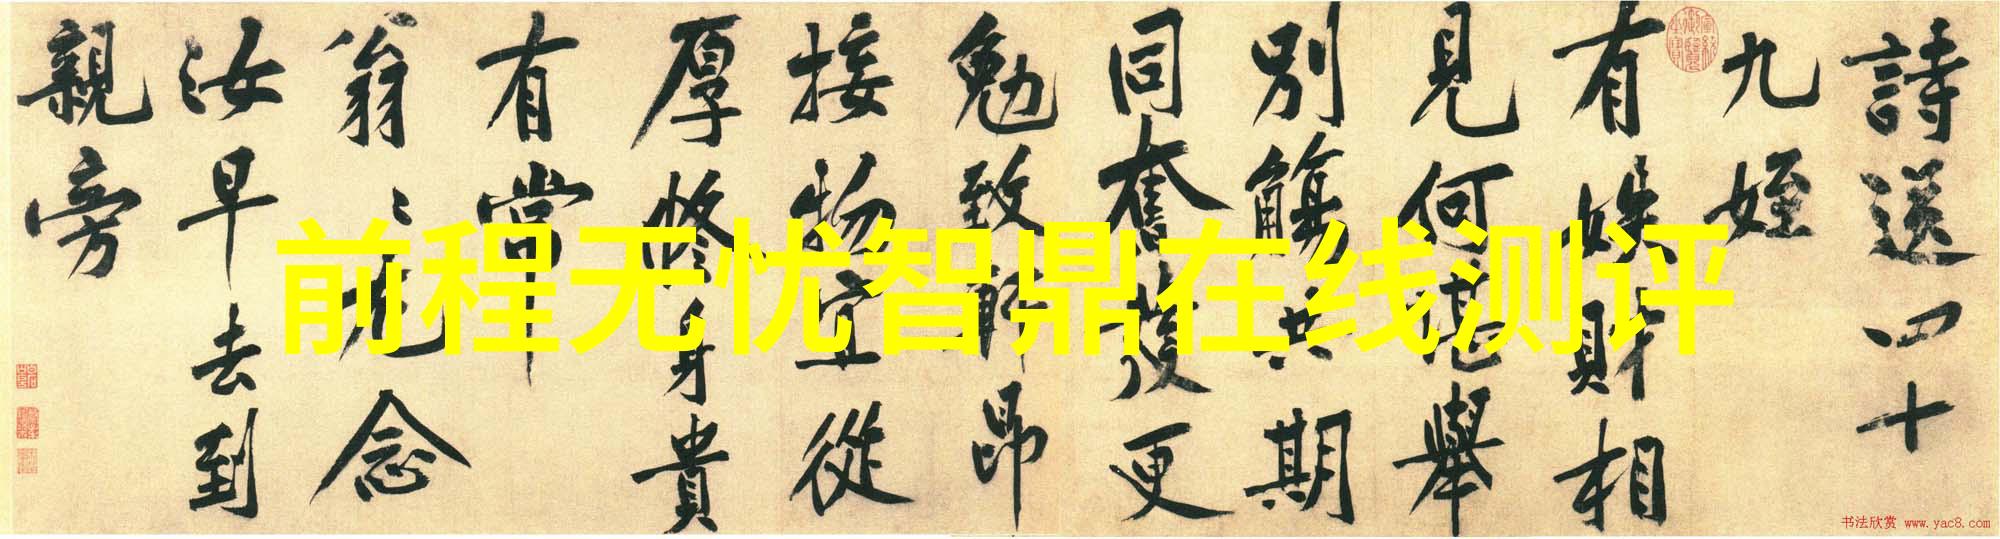 詩送四十
九姪
有姪財相
見何堪舉
別觴共期
同奮發更
勉致軒昂
接物宜從
厚脩身貴
有常
翁〻尤念
汝早去到
親旁
前程无忧智鼎在线测评
书法欣赏 www.yac8.com